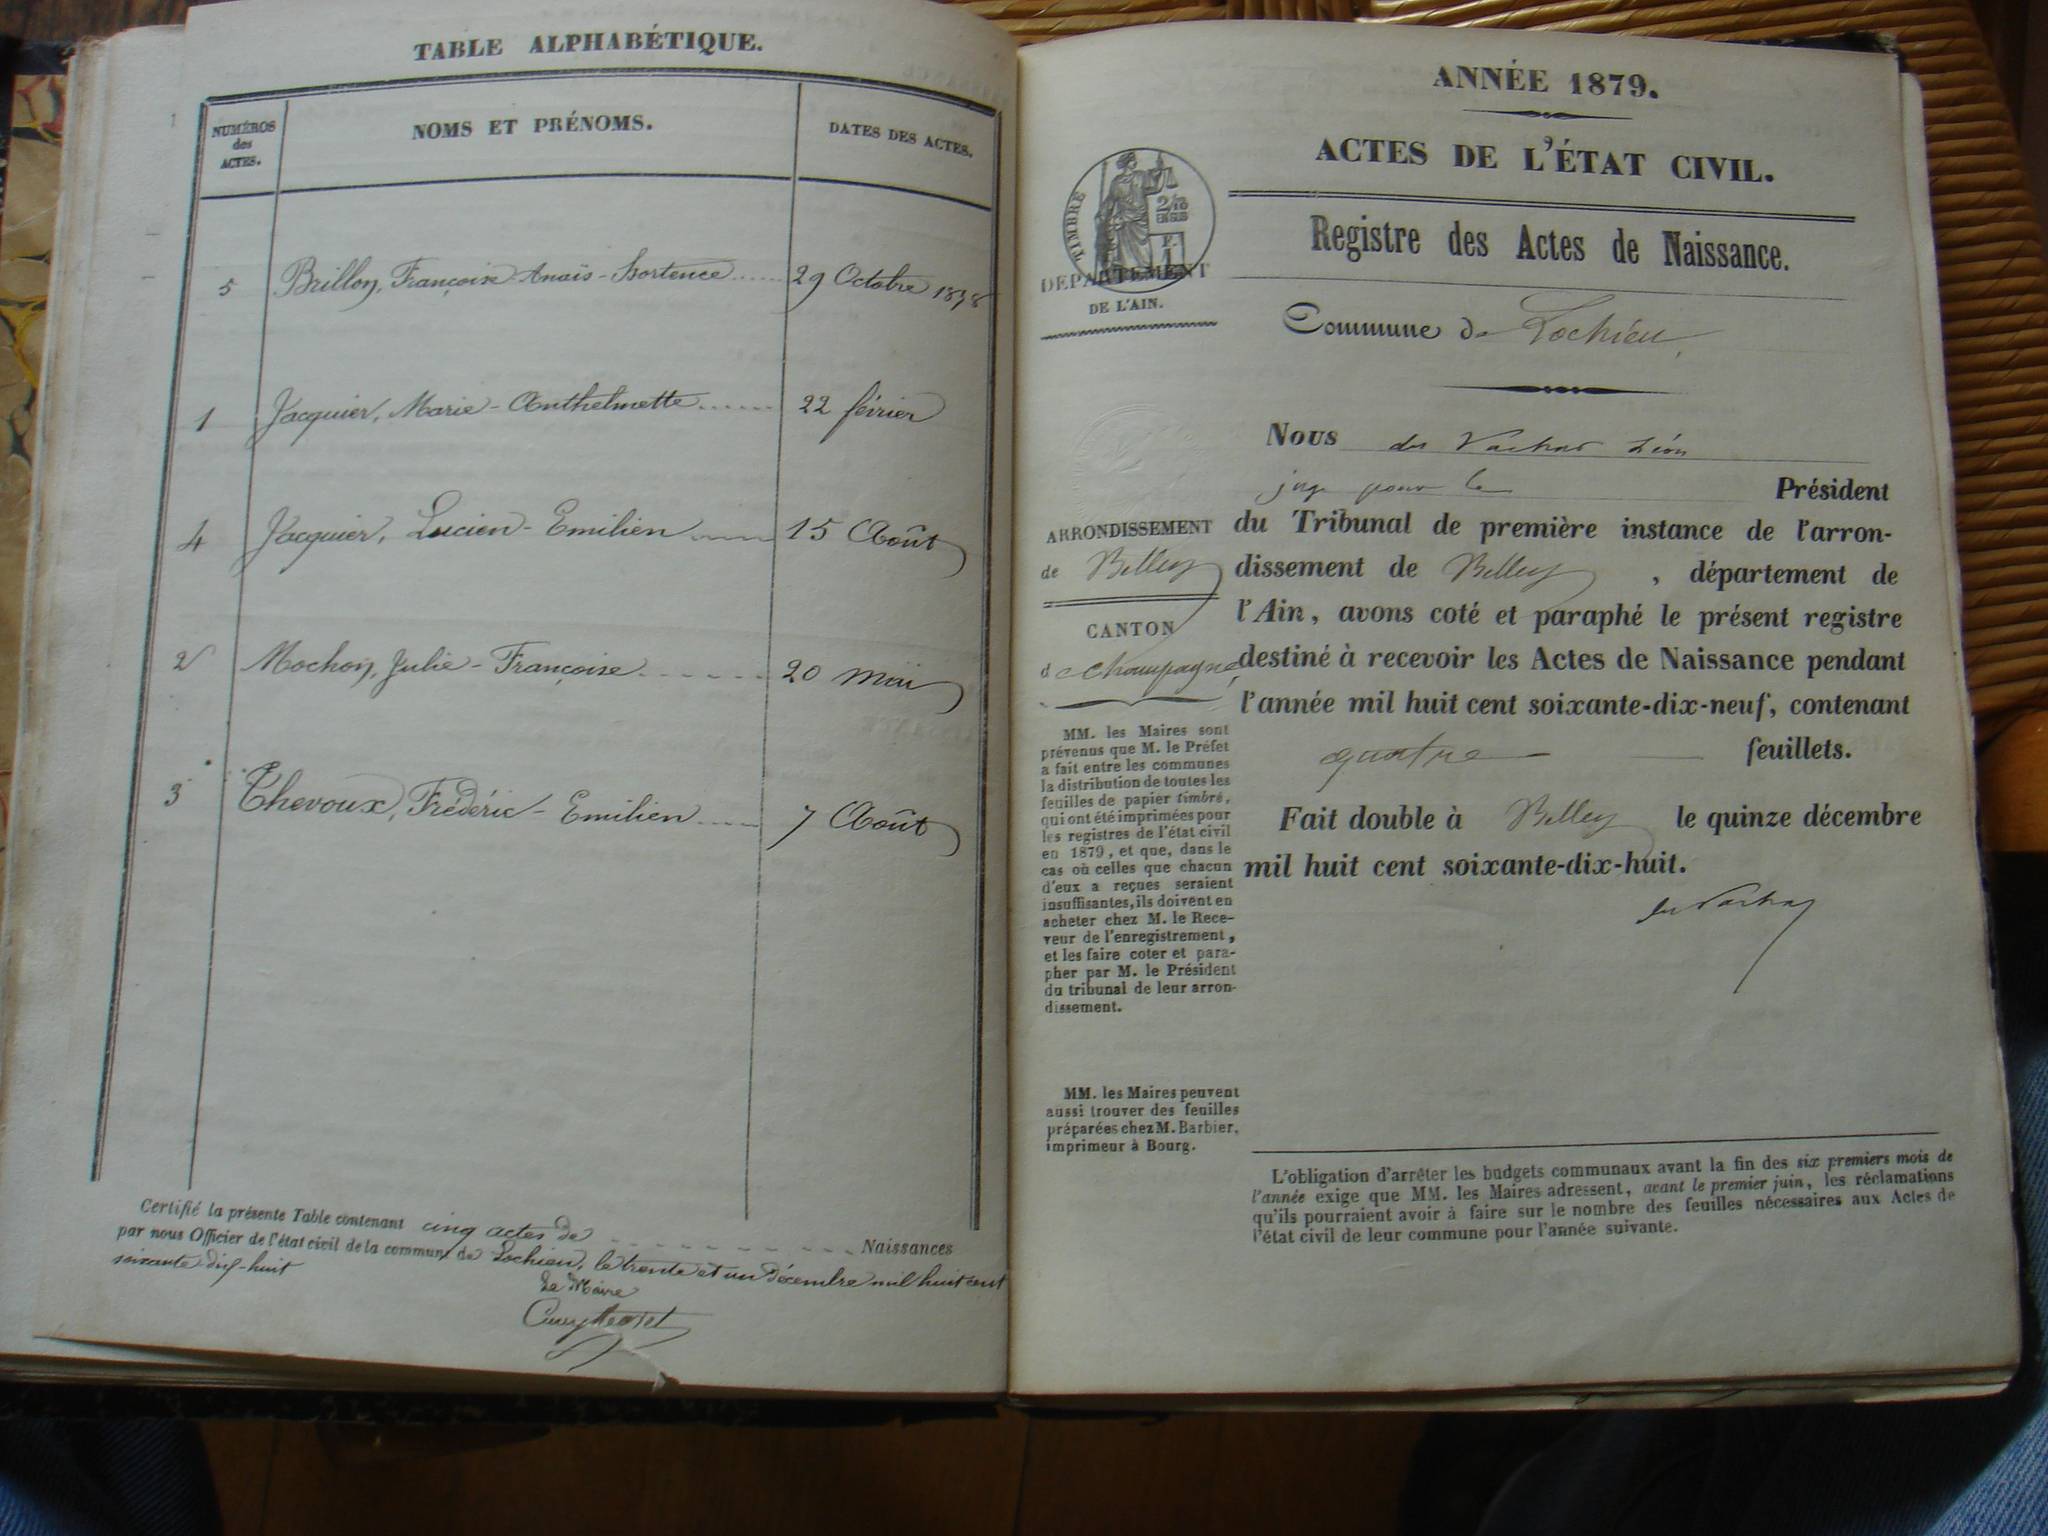 TABLE ALPHABÉTIQUE.
NUMÉROS
des
ACTES.
NOMS ET PRÉNOMS.
DATES DES ACTES.
5 Brillon, Françoise Anaïs-Hortence ..... 29 Octobre 1878
1 Jacquier, Marie-Anthelmette ...... 22 février
4 Jacquier, Lucien-Emilien ..... 15 Août
2 Mochon, Julie-Françoise ....... 20 Mai
3 Thevoux, Frédéric-Emilien .... 7 Août
Certifié la présente Table contenant cinq actes de Naissances
par nous Officier de l'état civil de la commune de Lochieu, le trente et un décembre mil huit cent
soixante-dix-huit
Le Maire
ANNÉE 1879.
ACTES DE L'ÉTAT CIVIL.
TIMBRE
2/10
EN SUS
DEPARTEMENT
DE L'AIN.
Registre des Actes de Naissance.
Commune de Lochieu,
Nous du Vachat Léon
juge pour le Président
ARRONDISSEMENT
de Belley
CANTON
de Champagne
du Tribunal de première instance de l'arron-
dissement de Belley, département de
l'Ain, avons coté et paraphé le présent registre
destiné à recevoir les Actes de Naissance pendant
l'année mil huit cent soixante-dix-neuf, contenant
quatre feuillets.
Fait double à Belley le quinze décembre
mil huit cent soixante-dix-huit.
du Vachat
MM. les Maires sont
prévenus que M. le Préfet
a fait entre les communes
la distribution de toutes les
feuilles de papier timbré,
qui ont été imprimées pour
les registres de l'état civil
en 1879, et que, dans le
cas où celles que chacun
d'eux a reçues seraient
insuffisantes, ils doivent en
acheter chez M. le Rece-
veur de l'enregistrement,
et les faire coter et para-
pher par M. le Président
du tribunal de leur arron-
dissement.
MM. les Maires peuvent
aussi trouver des feuilles
préparées chez M. Barbier,
imprimeur à Bourg.
L'obligation d'arrêter les budgets communaux avant la fin des six premiers mois de
l'année exige que MM. les Maires adressent, avant le premier juin, les réclamations
qu'ils pourraient avoir à faire sur le nombre des feuilles nécessaires aux Actes de
l'état civil de leur commune pour l'année suivante.